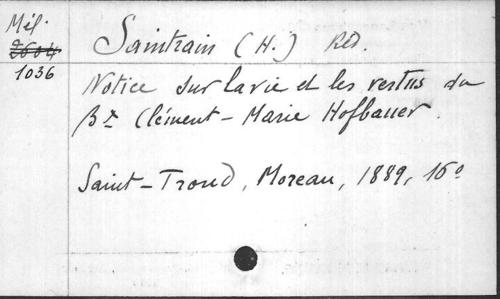 Mél.
2604
1036
Saintrain (H.) Réd.
Notice sur la vie et les vertus du
Bx Clément-Marie Hofbauer.
Saint-Trond, Moreau, 1889, 16o